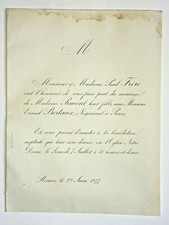 M
Monsieur & Madame Paul Frère
ont l'honneur de vous faire part du mariage
de Madame Simont leur fille, avec Monsieur
Ernest Bertaux, Négociant à Paris,
Et vous prient d'assister à la bénédiction
nuptiale qui leur sera donnée en l'Eglise Notre
Dame, le Samedi 7 Juillet, à 11 heures et demie.
le 28 Juin 1877